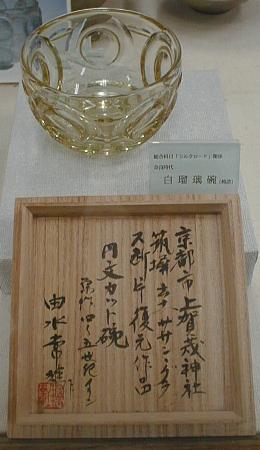 総合科目「シルクロード」関係
奈良時代
白瑠璃碗(模造)
京都市上賀茂神社
築塀出土ササングラ
ス断片復元作品
円文カット碗
原作四〜五世紀イラン
由水常雄 作